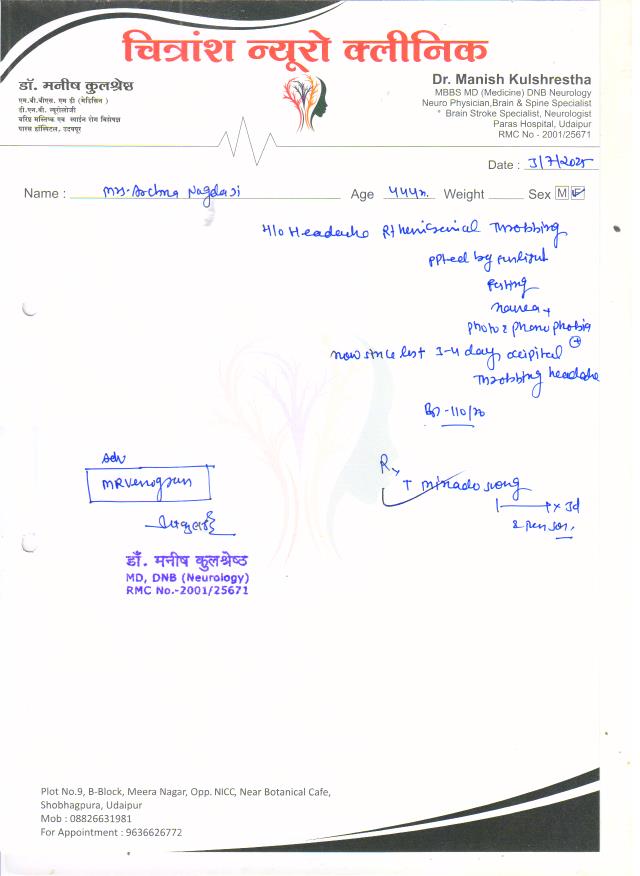 चित्रांश न्यूरो क्लीनिक
डॉ. मनीष कुलश्रेष्ठ
एम.बी.बीएस. एम डी (मेडिसिन)
डी.एन.बी. न्यूरोलॉजी
वरिष्ठ मस्तिष्क एवं स्पाईन रोग विशेषज्ञ
पारस हॉस्पिटल, उदयपुर
Dr. Manish Kulshrestha
MBBS MD (Medicine) DNB Neurology
Neuro Physician,Brain & Spine Specialist
* Brain Stroke Specialist, Neurologist
Paras Hospital, Udaipur
RMC No - 2001/25671
Date : 3/7/2025
Name : Mrs. Archna Nagdaji Age 44 Weight Sex M F
H/o Headache Rt hemicranial Throbbing
ppted by sunlight
fasting
nausea +
photo & phonophobia +
now since last 3-4 days occipital
Throbbing headache
BP - 110/70
Adv
MR venogram
Rx
T
1 x 3d
डॉ. मनीष कुलश्रेष्ठ
MD, DNB (Neurology)
RMC No.-2001/25671
Plot No.9, B-Block, Meera Nagar, Opp. NICC, Near Botanical Cafe,
Shobhagpura, Udaipur
Mob : 08826631981
For Appointment : 9636626772